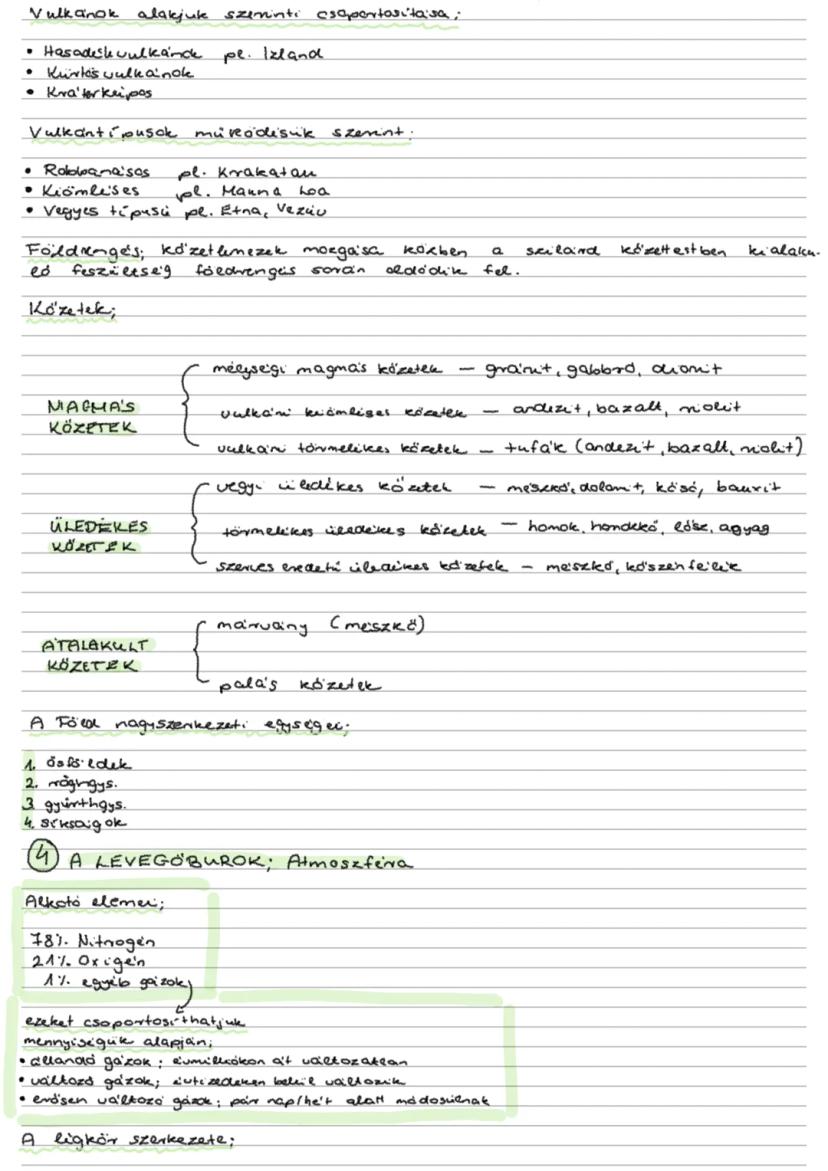 Vulkánok alakjuk szerinti csoportosítása;
• Hasadékvulkánok pl. Izland
• Kürtős vulkánok
• Kráterképos
Vulkántípusok működésük szerint;
• Robbanásos pl. Krakatau
• Kiömléses pl. Mauna Loa
• Vegyes típusú pl. Etna, Vezúv
Földrengés; kőzetlemezek mozgása közben a szilárd kőzettestben kialaku-
ló feszültség földrengés során oldódik fel.
Kőzetek;
mélységi magmás kőzetek – gránit, gabbró, diorit
MAGMÁS
KŐZETEK
vulkáni kiömléses kőzetek – andezit, bazalt, riolit
vulkáni törmelékes kőzetek – tufák (andezit, bazalt, riolit)
vegyi üledékes kőzetek – mészkő, dolomit, kősó, bauxit
ÜLEDÉKES
KŐZETEK
törmelékes üledékes kőzetek – homok, homokkő, lösz, agyag
szerves eredetű üledékes kőzetek – mészkő, kőszénfélék
márvány (mészkő)
ÁTALAKULT
KŐZETEK
palás kőzetek
A Föld nagyszerkezeti egységei;
1. ősföldek
2. röghgys.
3. gyűrthgys.
4. síkságok
4 A LEVEGŐBUROK; Atmoszféra
Alkotó elemei;
78% Nitrogén
21% Oxigén
1% egyéb gázok
ezeket csoportosíthatjuk
mennyiségük alapján;
• állandó gázok; évmilliókon át változatlan
• változó gázok; évtizedeken belül változik
• erősen változó gázok; pár nap/hét alatt módosulnak
A légkör szerkezete;